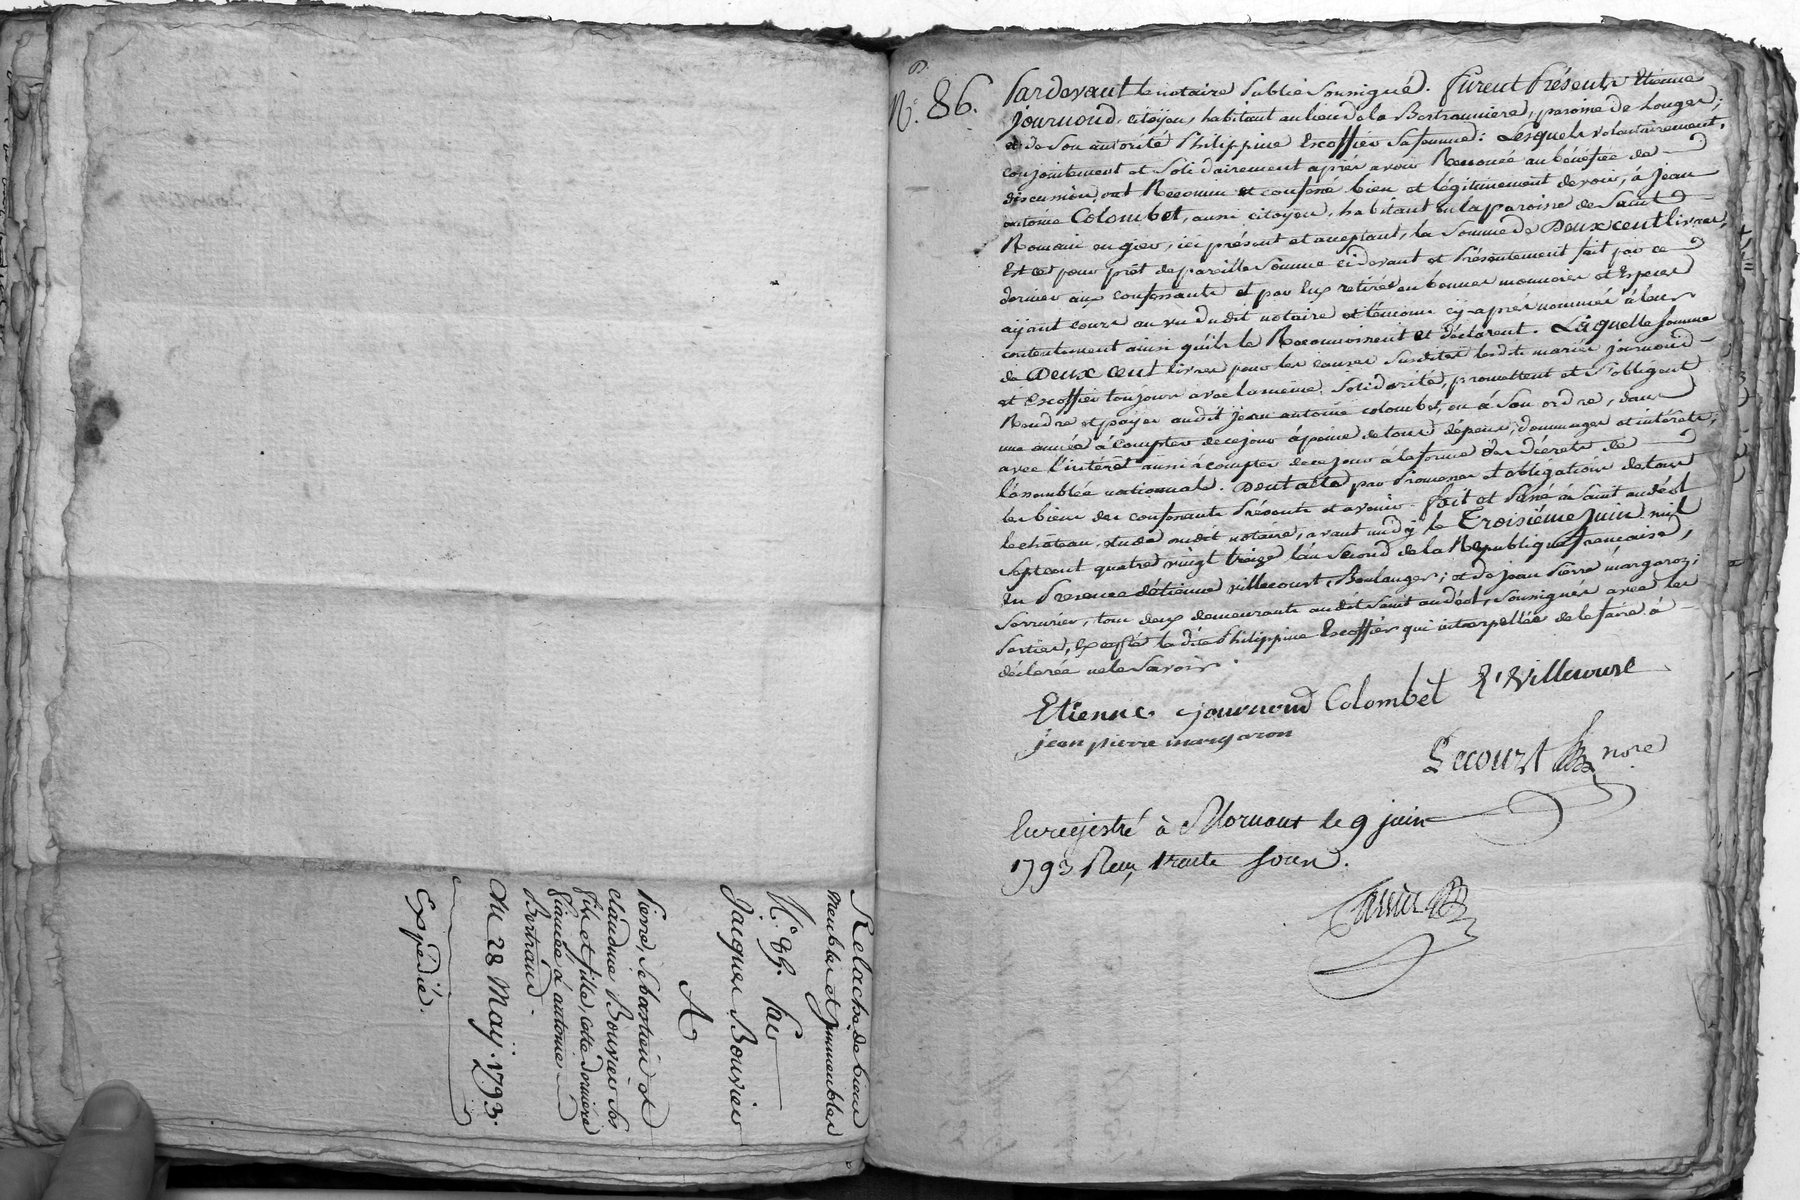 Relache de biens
meubles et jmmeubles
N.° 85. Par
Jacques Bouvier
A
Pierre, Sébastien et
claudine Bouvier ses
fils et fille, cette dernière
fiancée à antoine
Bertrand.
Du 28 May. 1793.
Expédié.
N.° 86.
Pardevant le notaire Public Soussigné. Furent Présents Etienne
Journoud, citoyen, habitant au lieu de la Bertranniere, paroisse de Longes;
et de Son autorité Philippine Escoffier Sa femme: Lesquels volontairement,
conjointement et Solidairement après avoir Renoncé au bénéfice de
discussion, ont Reconnu et confessé bien et légitimement devoir, à Jean
antoine Colombet, aussi citoyen, habitant en la paroisse de Saint
Romain en gier, ici présent et acceptant, la Somme de Deux cent livres,
Est ce pour prêt de pareille Somme cidevant et Présentement fait par ce
dernier aux confessants et par Eux retirée en bonnes monnoies et Especes
ayant cours au vu dudit notaire et témoins cy-après nommés à leur
contentement ainsi qu'ils le Reconnoissent et déclarent. Laquelle Somme
de Deux cent livres pour les causes Susdites lesdits mariés Journoud
et Escoffier toujours avec la même Solidarité, promettent et S'obligent
Rendre et payer audit Jean antoine colombet, ou à Son ordre, dans
une année à compter de ce jour à peine de tous dépens, dommages et intérêts;
avec l'intérêt aussi à compter de ce jour à la forme des décrets de
l'assemblée nationale. Dont acte par Promesses et obligations de tous
les biens des confessants Présents et avenir. Fait et Passé à Saint andéol
le château, étude dudit notaire, avant midy le Troisième Juin mil
Sept cent quatre vingt treize l'an Second de la République française,
En Présence d'étienne villecourt Boulanger; et de Jean Pierre margaron,
Serrurier, tous deux demeurants audit Saint andéol, Soussignés avec les
Parties, Excepté ladite Philippine Escoffier qui interpellée de le faire a
déclarée ne le Savoir.
Etienne journoud Colombet E. Villecourt
jean pierre margaron
Lecourt nore
Enregistré à Mornant le 9 juin
1793 Reçu trente sous.